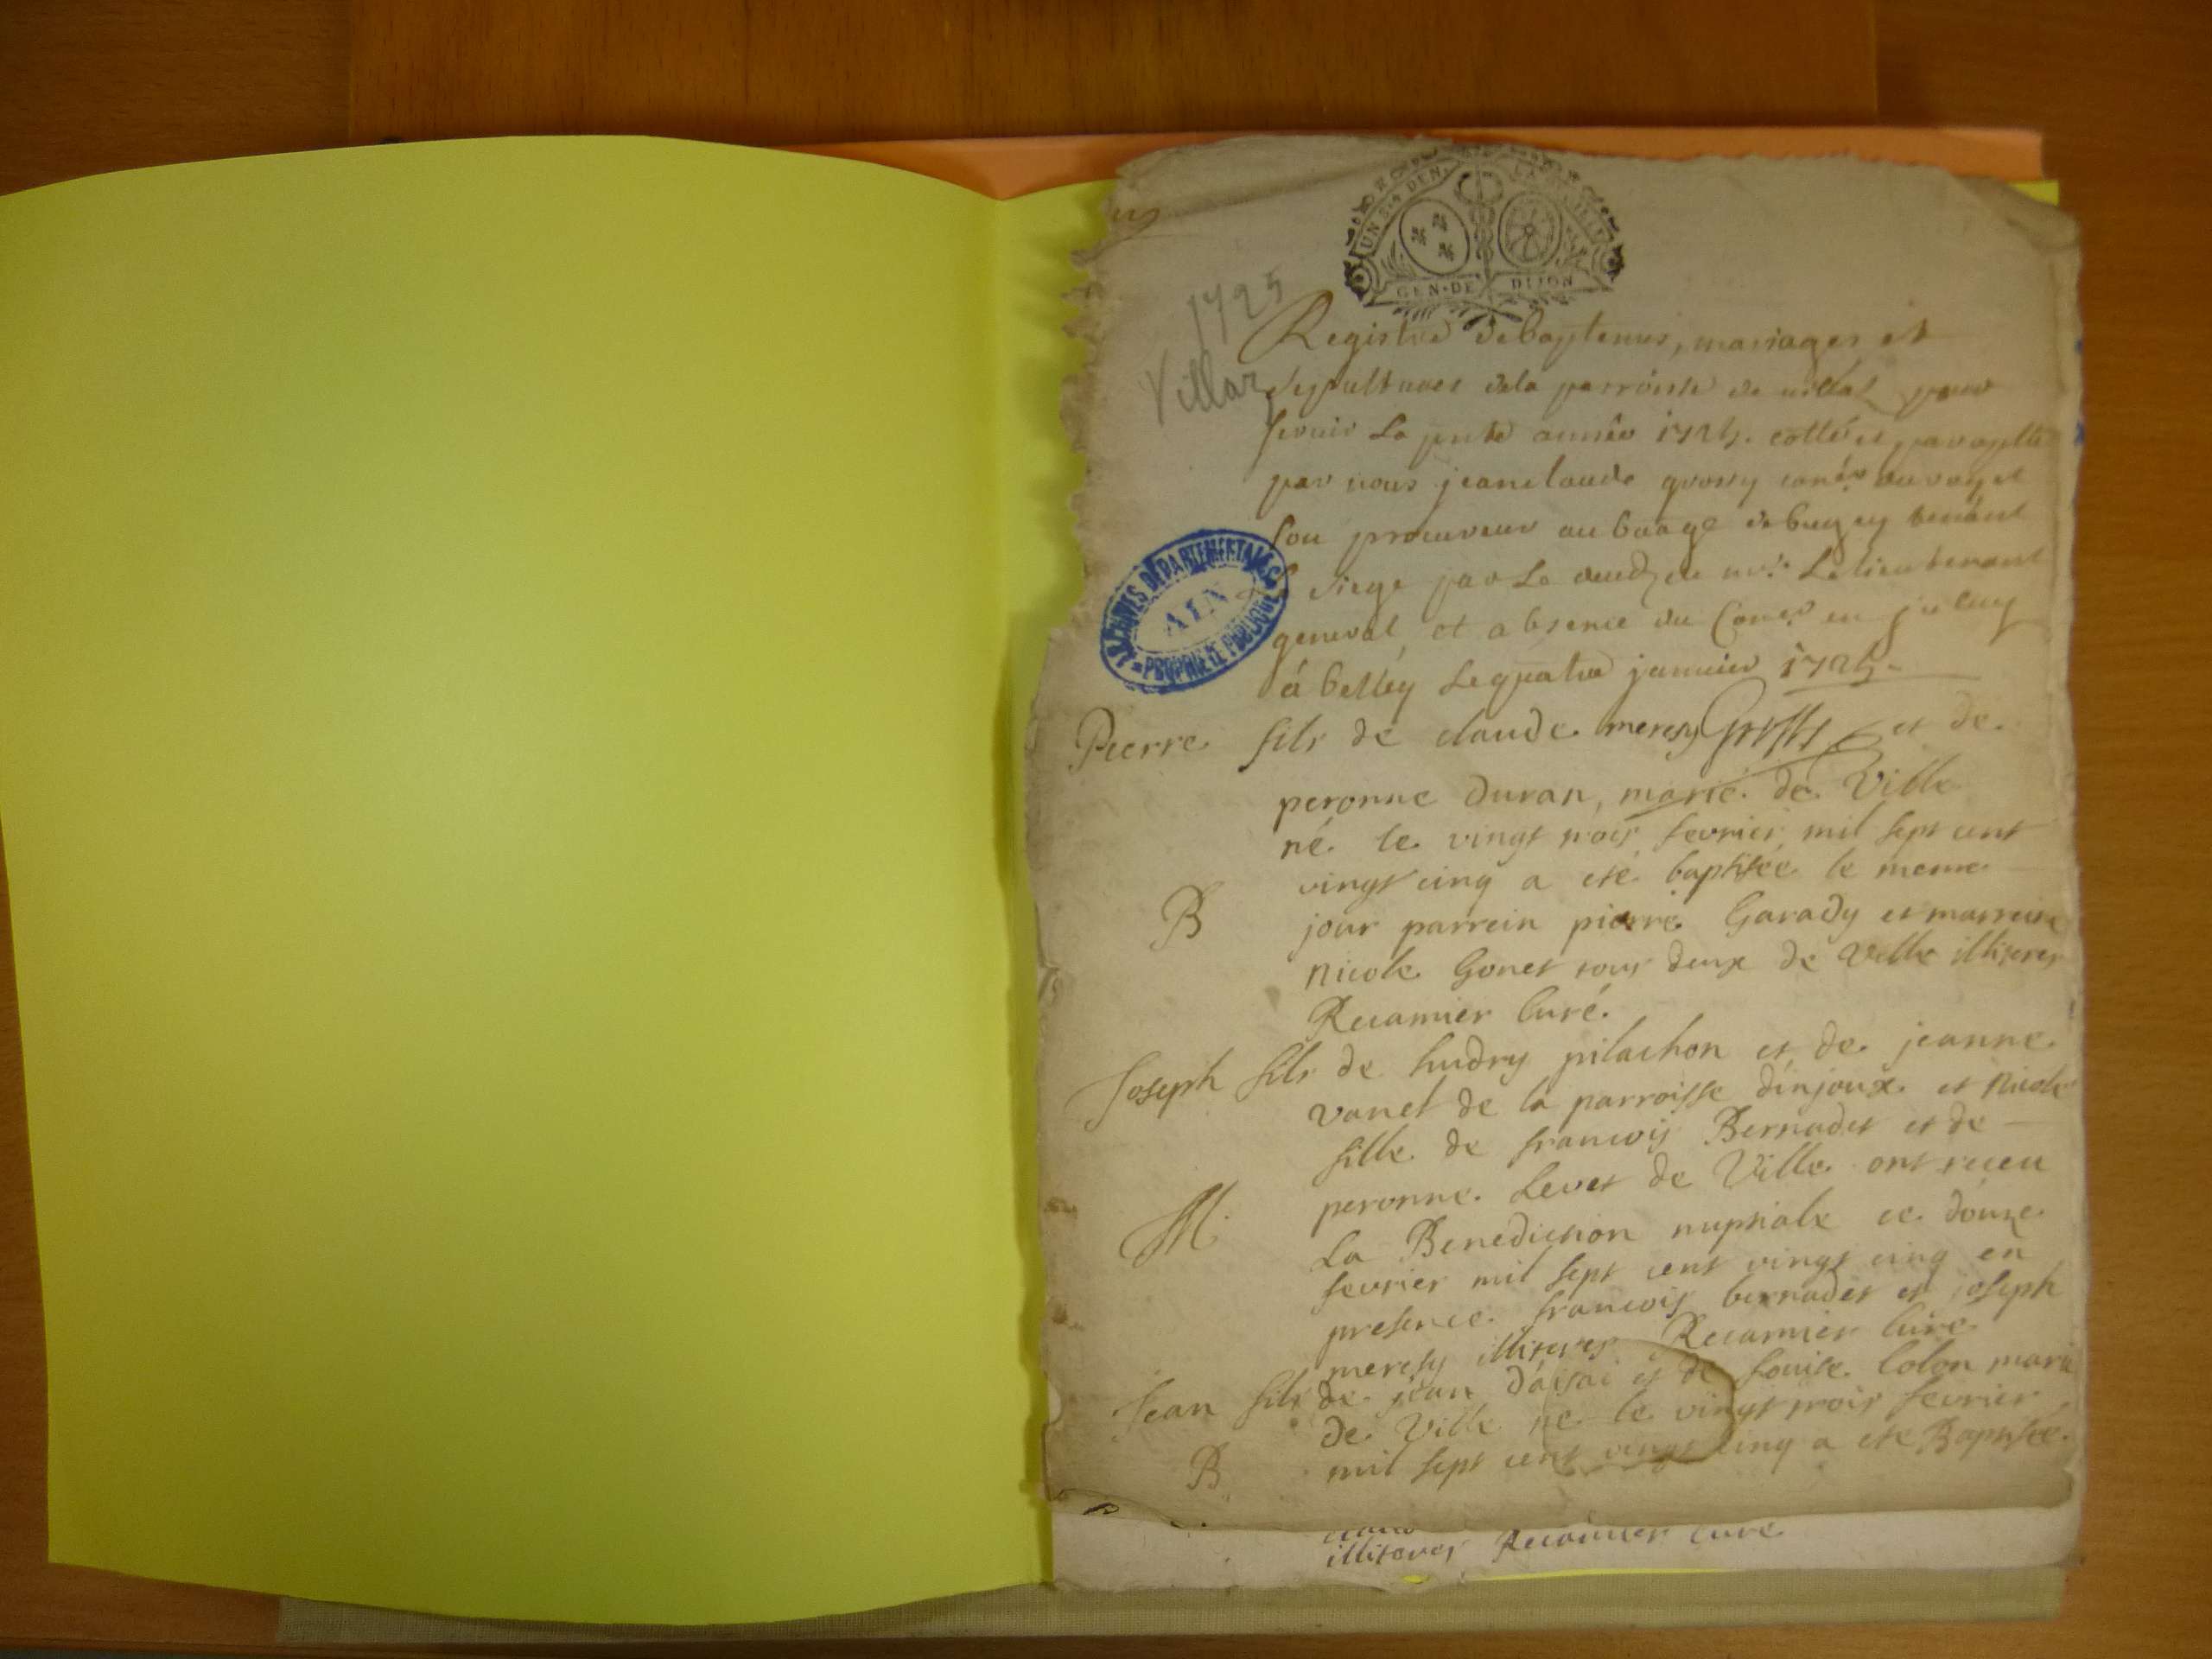 UN S. 4 DEN.
GEN. DE DIJON
1725
Villaz
Registre de baptemes, mariages et
sepultures de la parroisse de villas pour
servir la pnte année 1725. cotté et paraphé
par nous jeanclaude grossy coner du roy et
son procureur au baage de bugey tenant
Le siege par le de mr. Le lieutenant
general, et absence du Coner en
à belley le quatre janvier 1725
ARCHIVES DEPARTEMENTALES
AIN
PROPRIETE PUBLIQUE
Pierre fils de claude meresy Grossy et de
peronne Duran, marié de Ville
né le vingt trois fevrier mil sept cent
vingt cinq a eté baptisée le meme
B jour parrein pierre Garady et marreine
nicole Gonet tous deux de Ville illiteres
Recamier Curé.
Joseph fils de hudry pilachon et de jeanne
vanet de la parroisse d'injoux et Nicole
fille de francois Bernadet et de
peronne Levet de Ville ont receu
M. La Benediction nuptiale ce douze
fevrier mil sept cent vingt cinq en
presence francois bernadet et joseph
meresy illiteres Recamier Curé
Jean fils de jean d'aisai et de Louise Colon marié
de Ville né le vingt trois fevrier
B mil sept cent vingt cinq a eté Baptisée
illiteres Recamier Curé